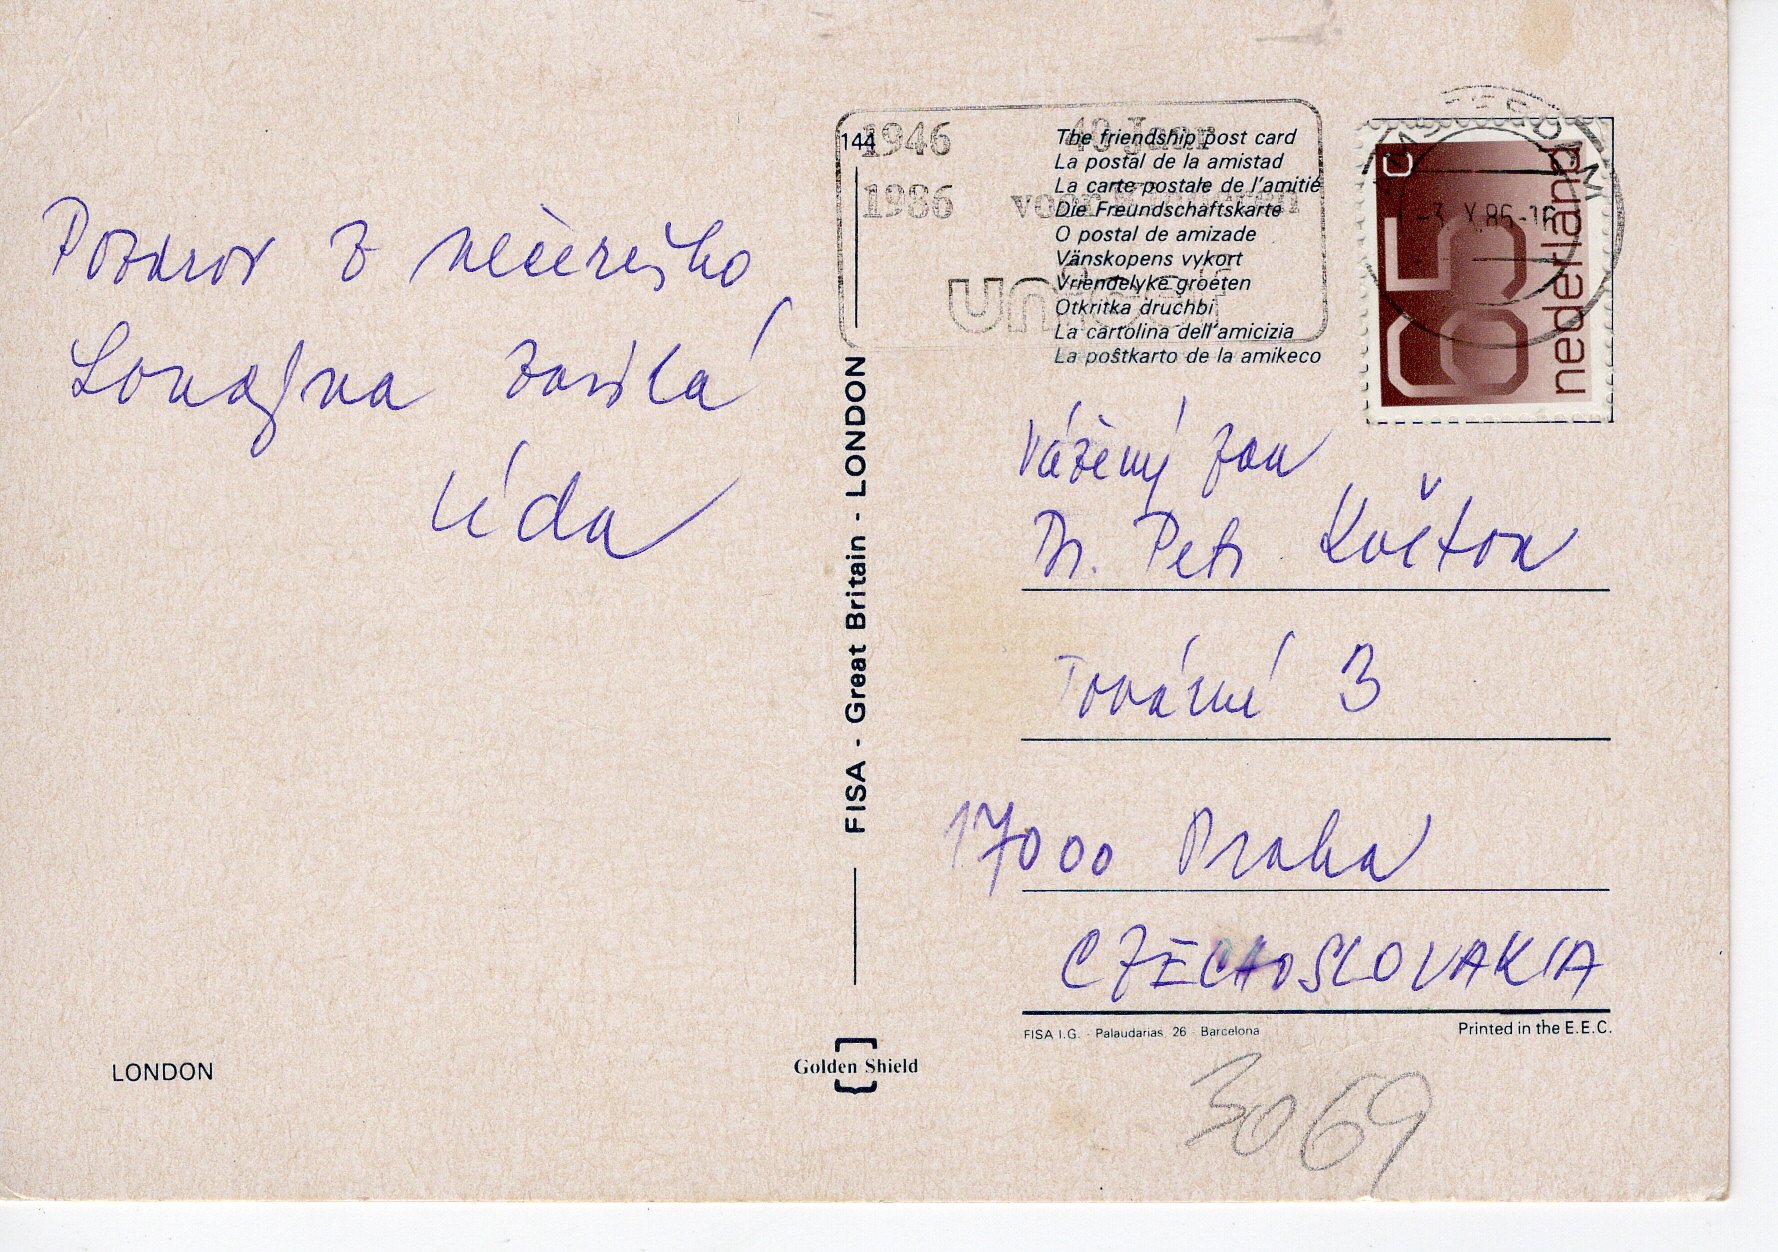 Pozdrav z
Londýna zasílá
Lída
144
1946 40 Jaar
1986 voor kinderen
unicef
The friendship post card
La postal de la amistad
La carte postale de l'amitié
Die Freundschaftskarte
O postal de amizade
Vänskopens vykort
Vriendelyke groeten
Otkritka druchbi
La cartolina dell'amicizia
La poŝtkarto de la amikeco
65 nederland
-3.X.86-16
FISA - Great Britain - LONDON
Vážený pan
Dr. Petr Květon
Tovární 3
17000 Praha
CZECHOSLOVAKIA
FISA I.G. - Palaudarias, 26 Barcelona
Printed in the E.E.C.
LONDON
Golden Shield
3069